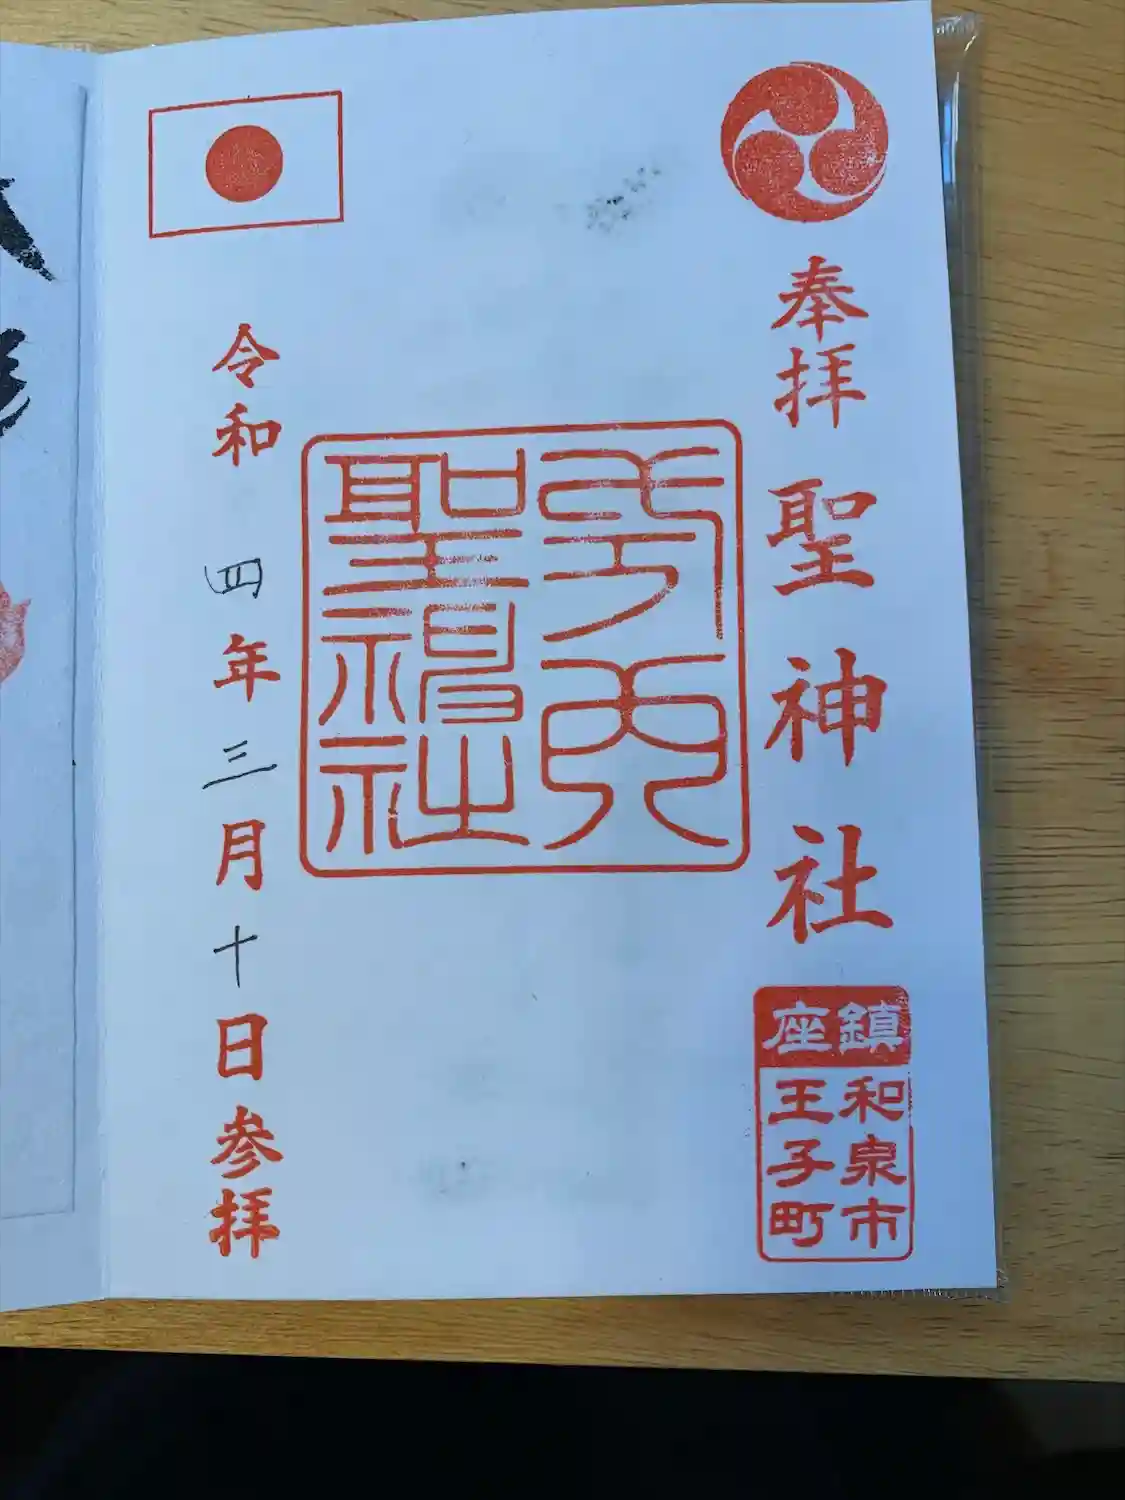 奉拝 聖神社
鎮座
和泉市
王子町
聖神社
令和四年三月十日参拝